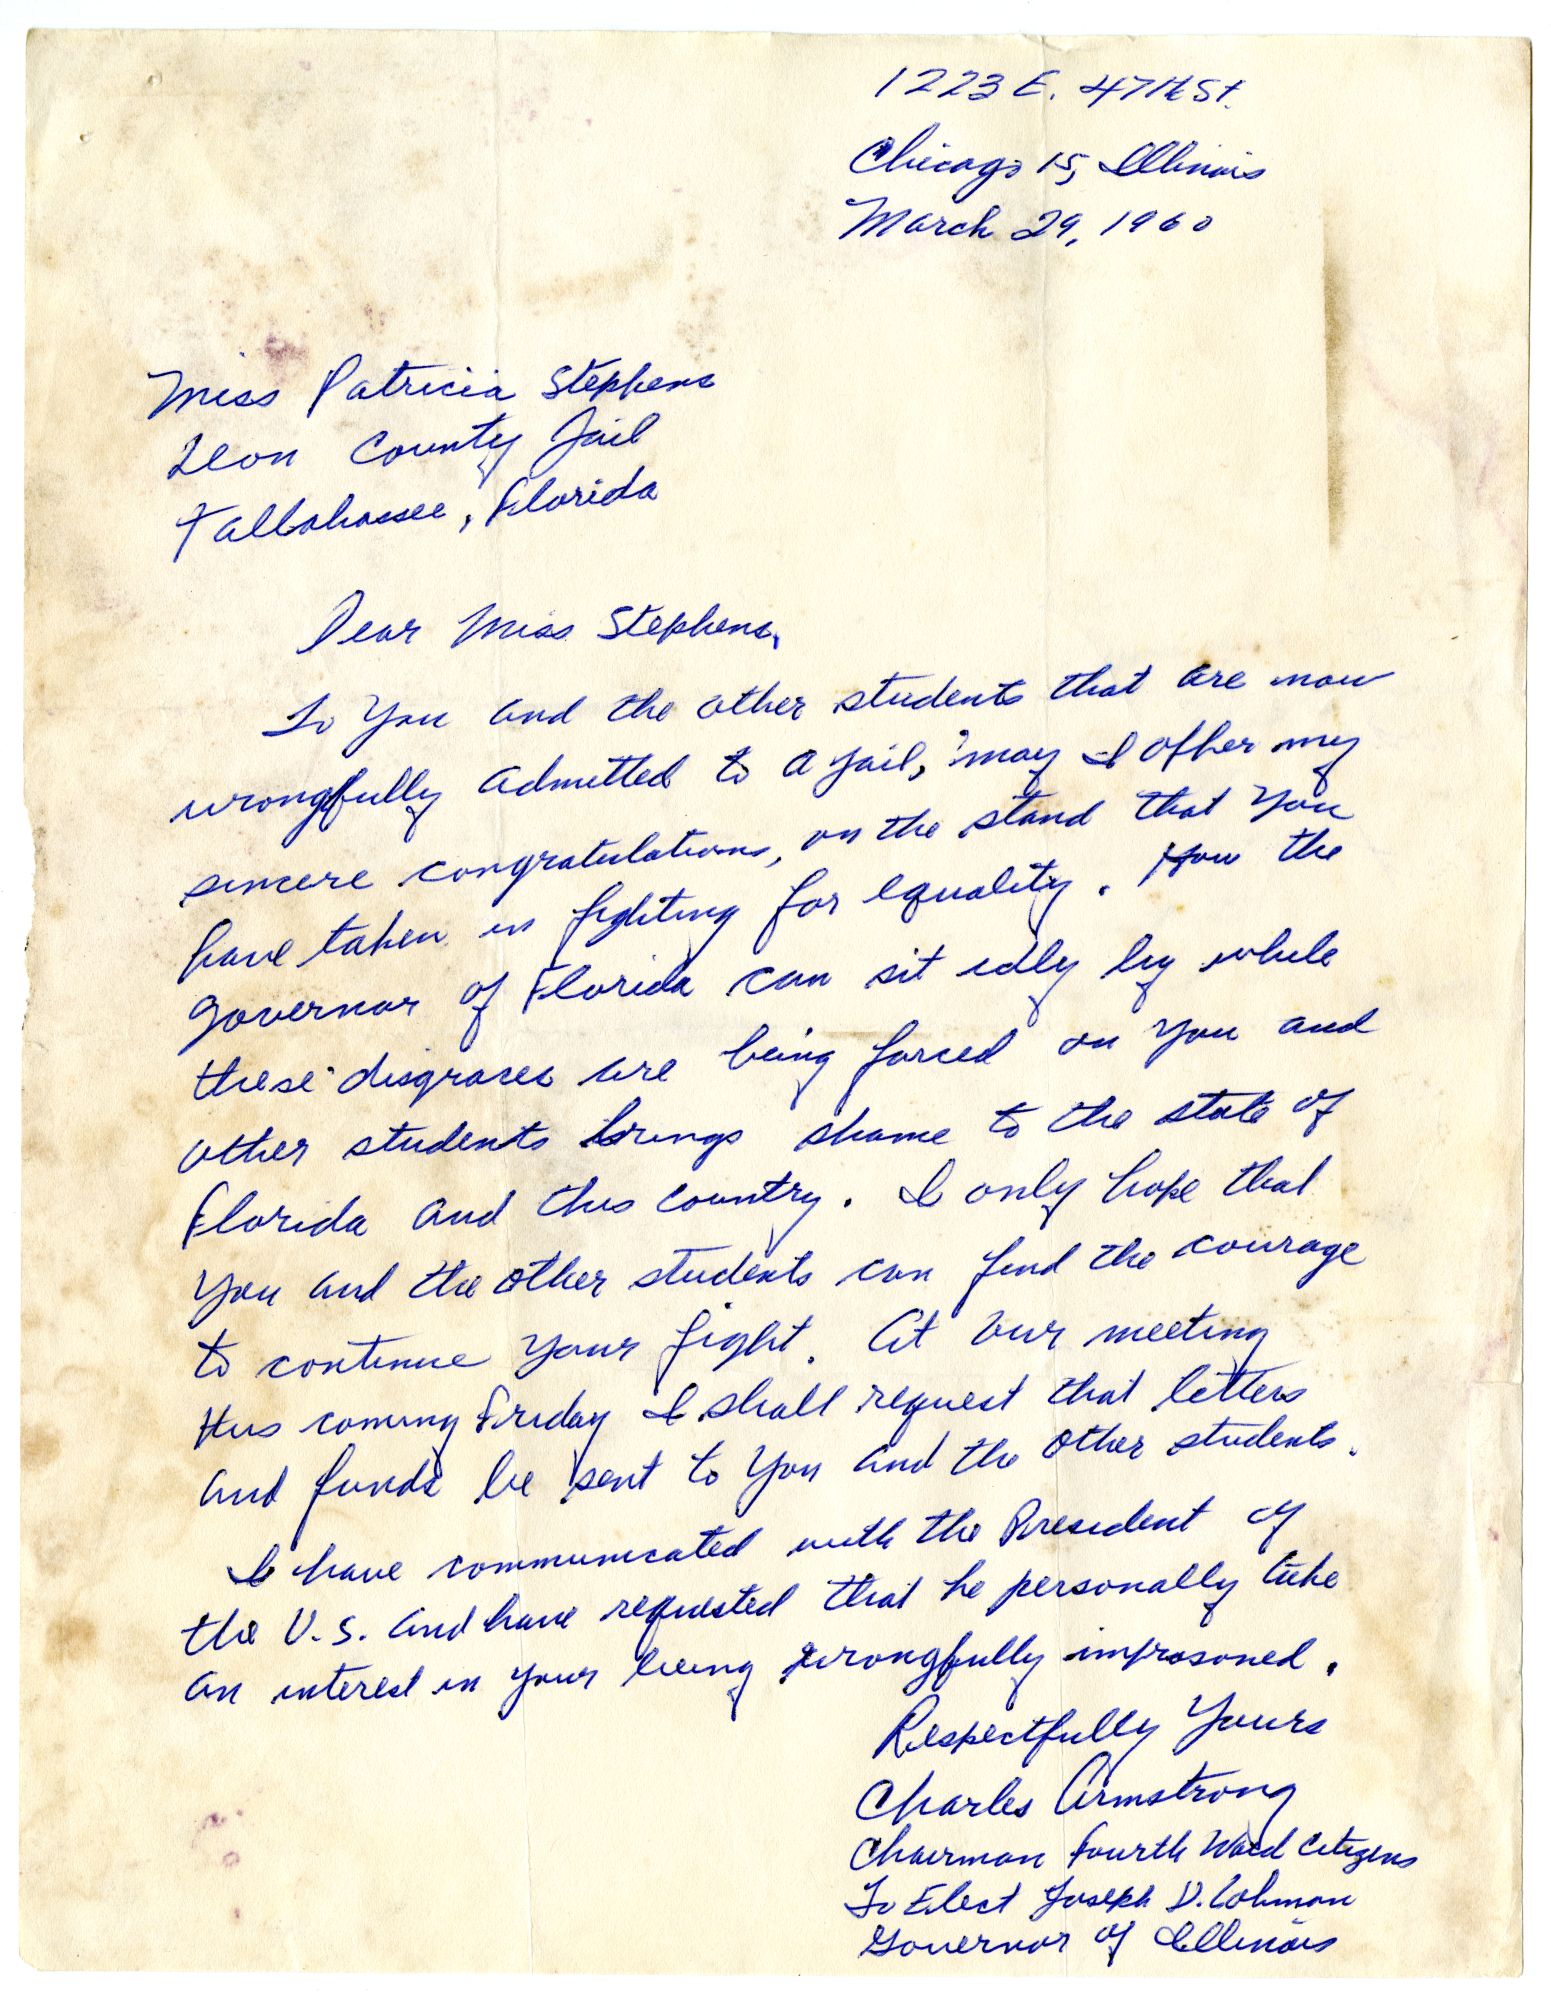 1223 E. 47th St.
Chicago 15, Illinois
March 29, 1960
Miss Patricia Stephens
Leon County Jail
Tallahassee, Florida
Dear Miss Stephens,
To You and the other students that are now
wrongfully admitted to a jail, may I offer my
sincere congratulations, on the stand that You
have taken in fighting for equality. How the
Governor of Florida can sit idly by while
these disgraces are being forced on You and
other students brings shame to the state of
Florida and this country. I only hope that
You and the other students can find the courage
to continue Your fight. At our meeting
this coming Friday I shall request that letters
and funds be sent to You and the other students.
I have communicated with the President of
the U.S. and have requested that he personally take
an interest in your being wrongfully improsoned.
Respectfully Yours
Charles Armstrong
Chairman Fourth Ward Citizens
To Elect Joseph D. Lohman
Governor of Illinois